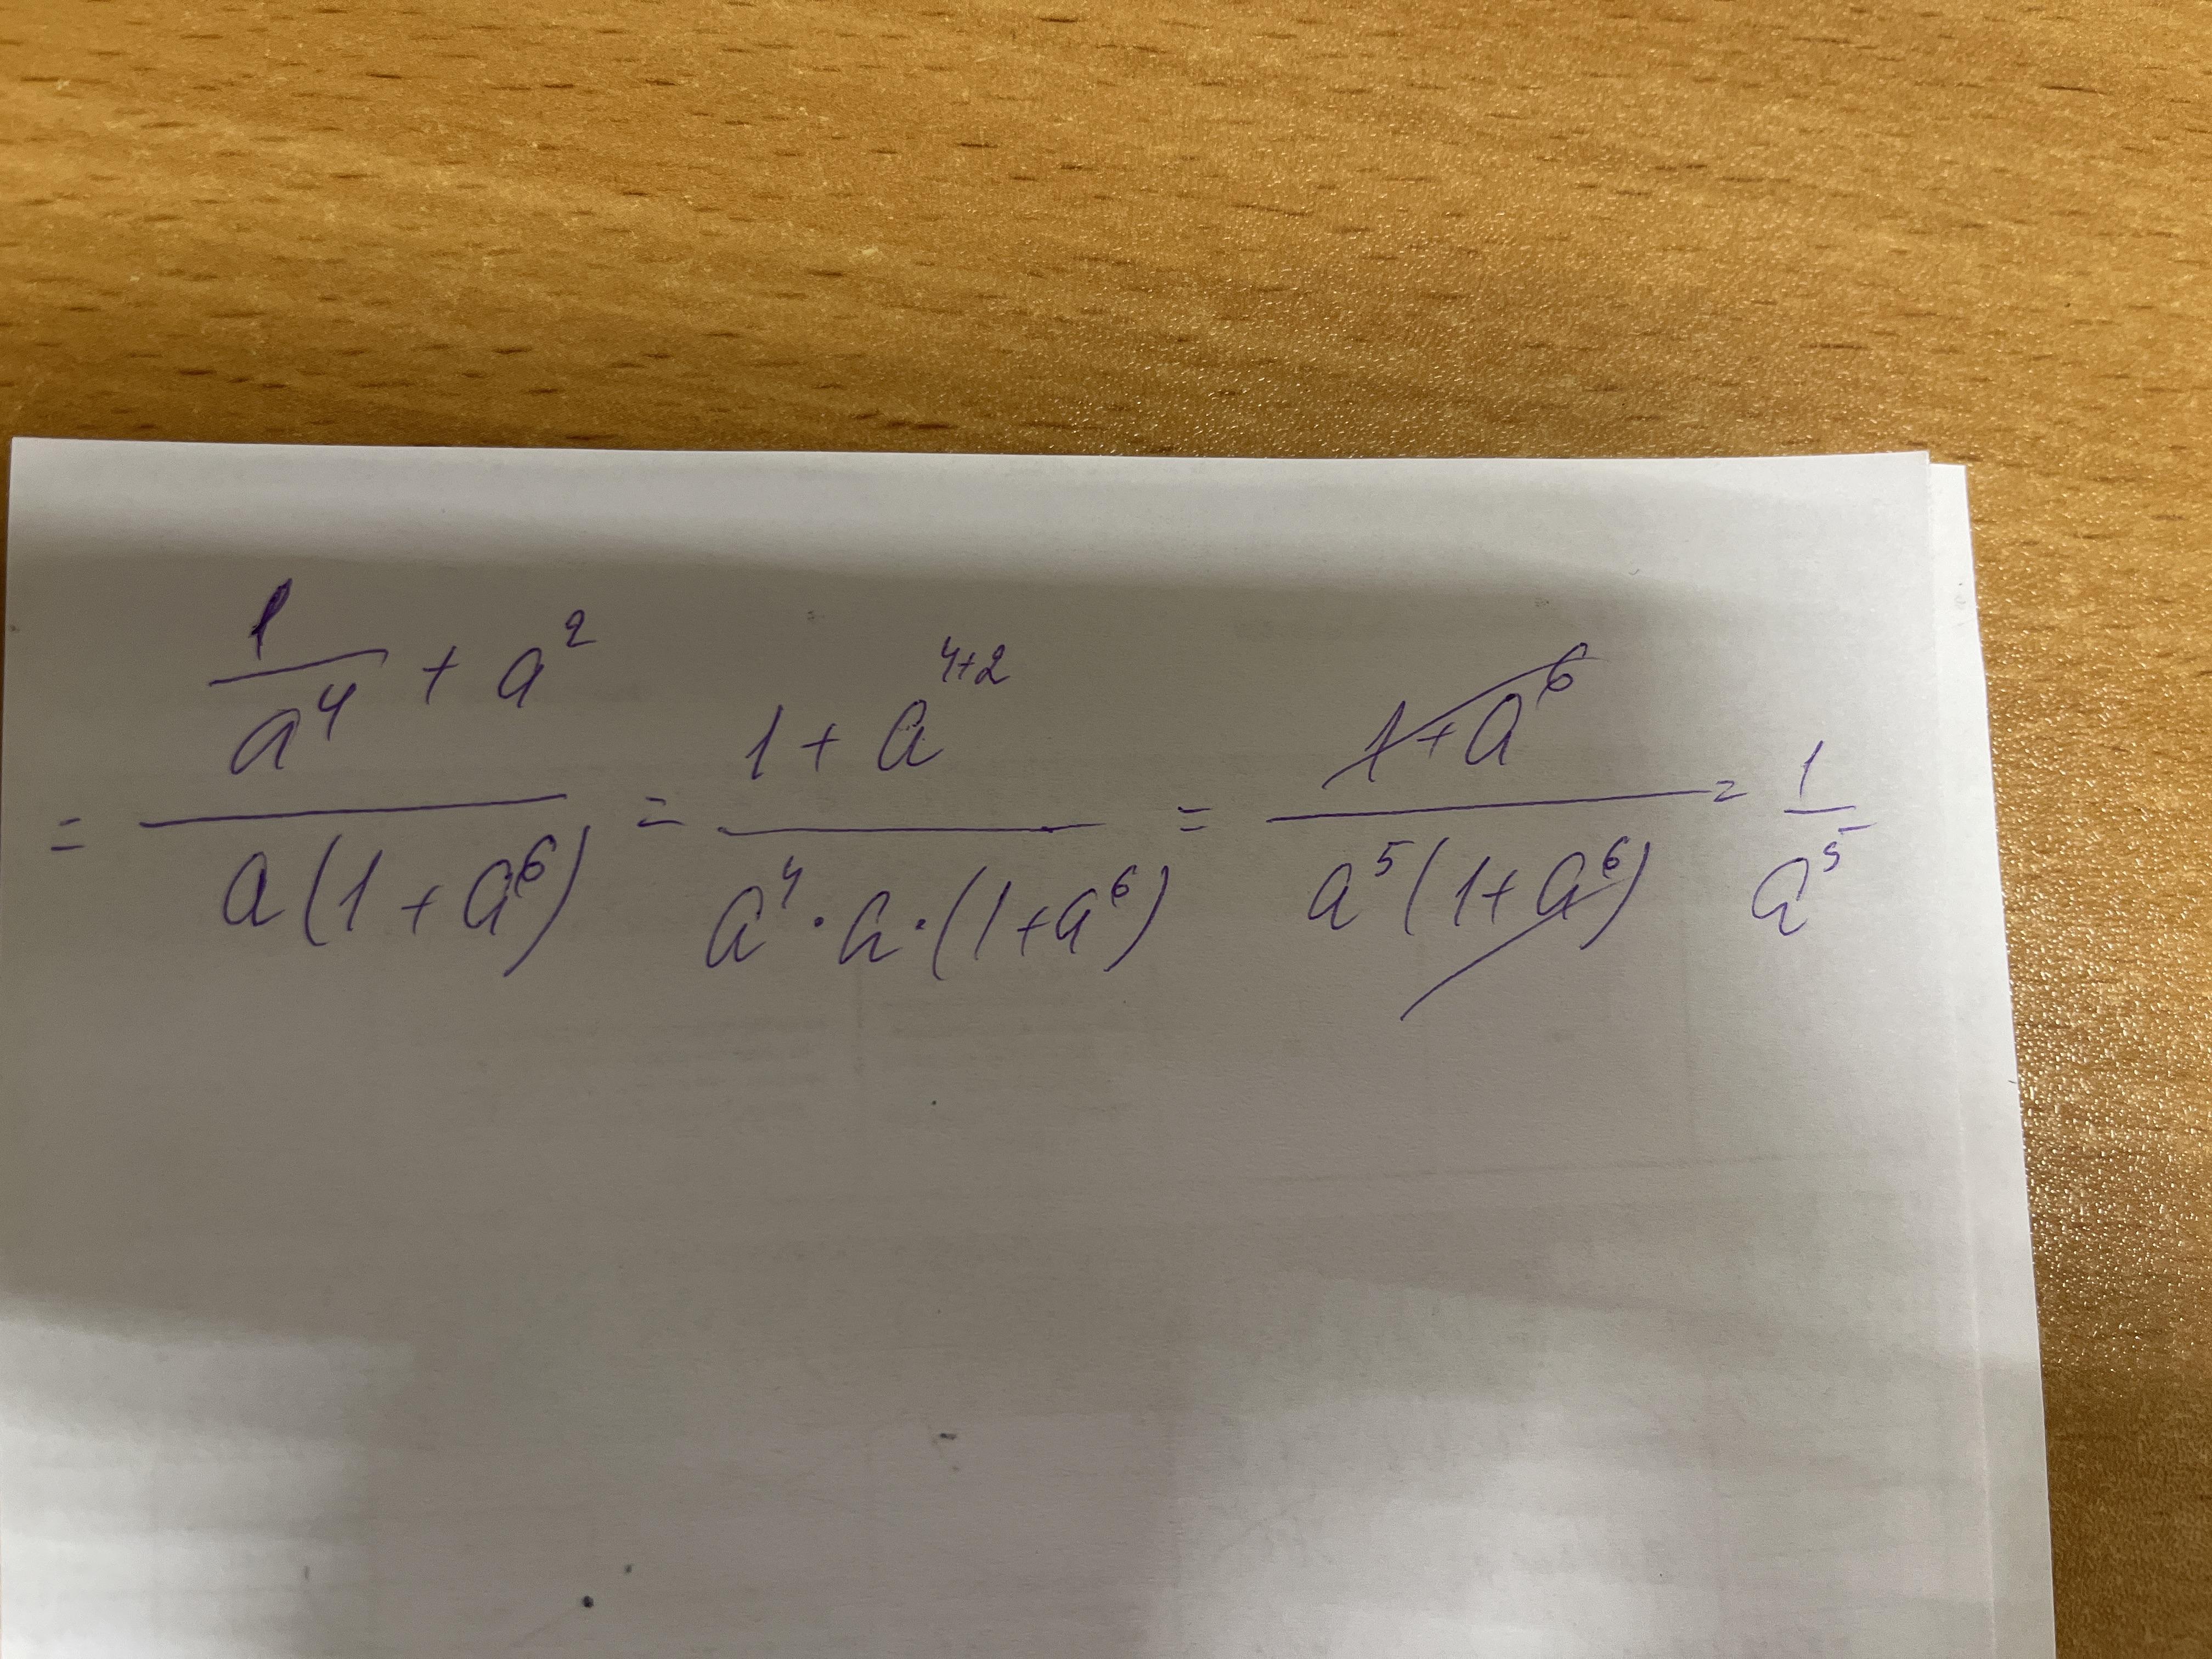 = (1/a⁴ + a²)/(a(1+a⁶)) = (1+a⁴⁺²)/(a⁴·a·(1+a⁶)) = (1+a⁶)/(a⁵(1+a⁶)) = 1/a⁵